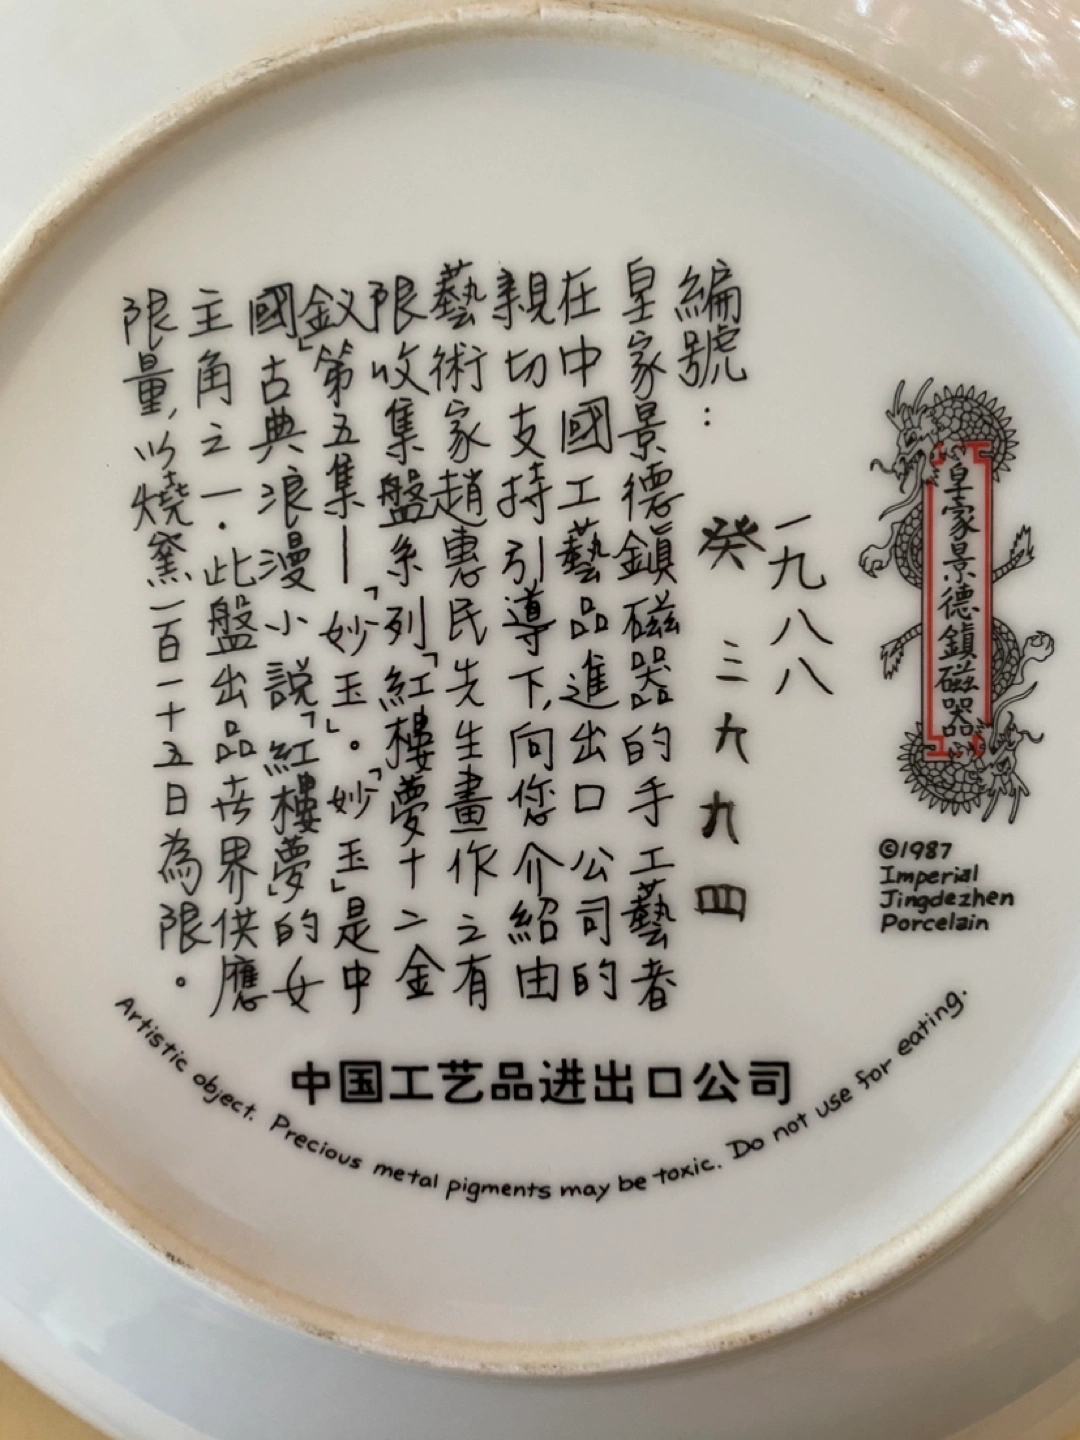 皇家景德鎮磁器
©1987
Imperial
Jingdezhen
Porcelain
一九八八
編號：癸三九九四
皇家景德鎮磁器的手工藝者
在中國工藝品進出口公司的
親切支持引導下，向您介紹由
藝術家趙惠民先生畫作之有
限收集盤系列「紅樓夢十二金
釵」第五集—「妙玉」。「妙玉」是中
國古典浪漫小說「紅樓夢」的女
主角之一．此盤出品世界供應
限量，以燒窯一百一十五日為限。
中国工艺品进出口公司
Artistic object. Precious metal pigments may be toxic. Do not use for eating.